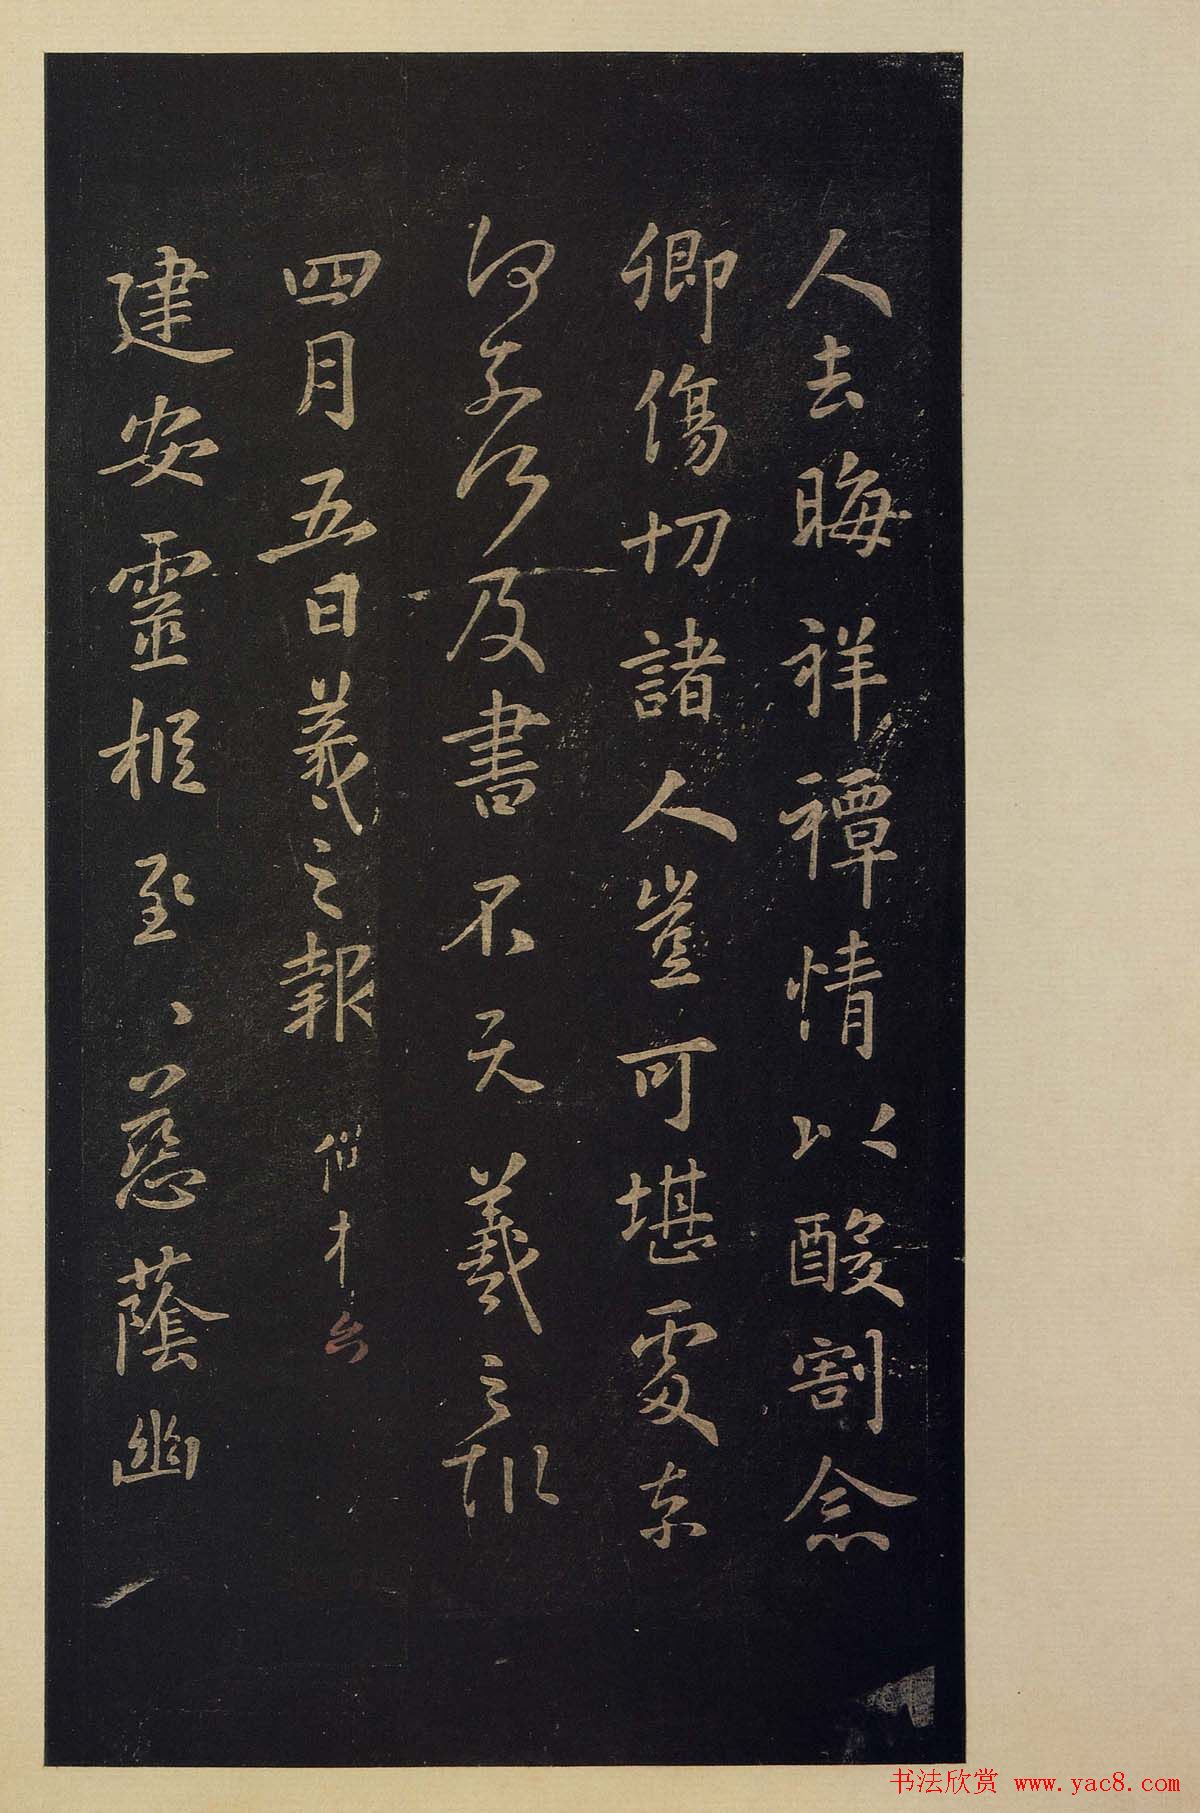 人去晦祥禫情以酸割念
卿傷切諸人豈可堪處奈
何奈何及書不羲之報
四月五日羲之報
建安靈柩至、慈蔭幽
书法欣赏 www.yac8.com